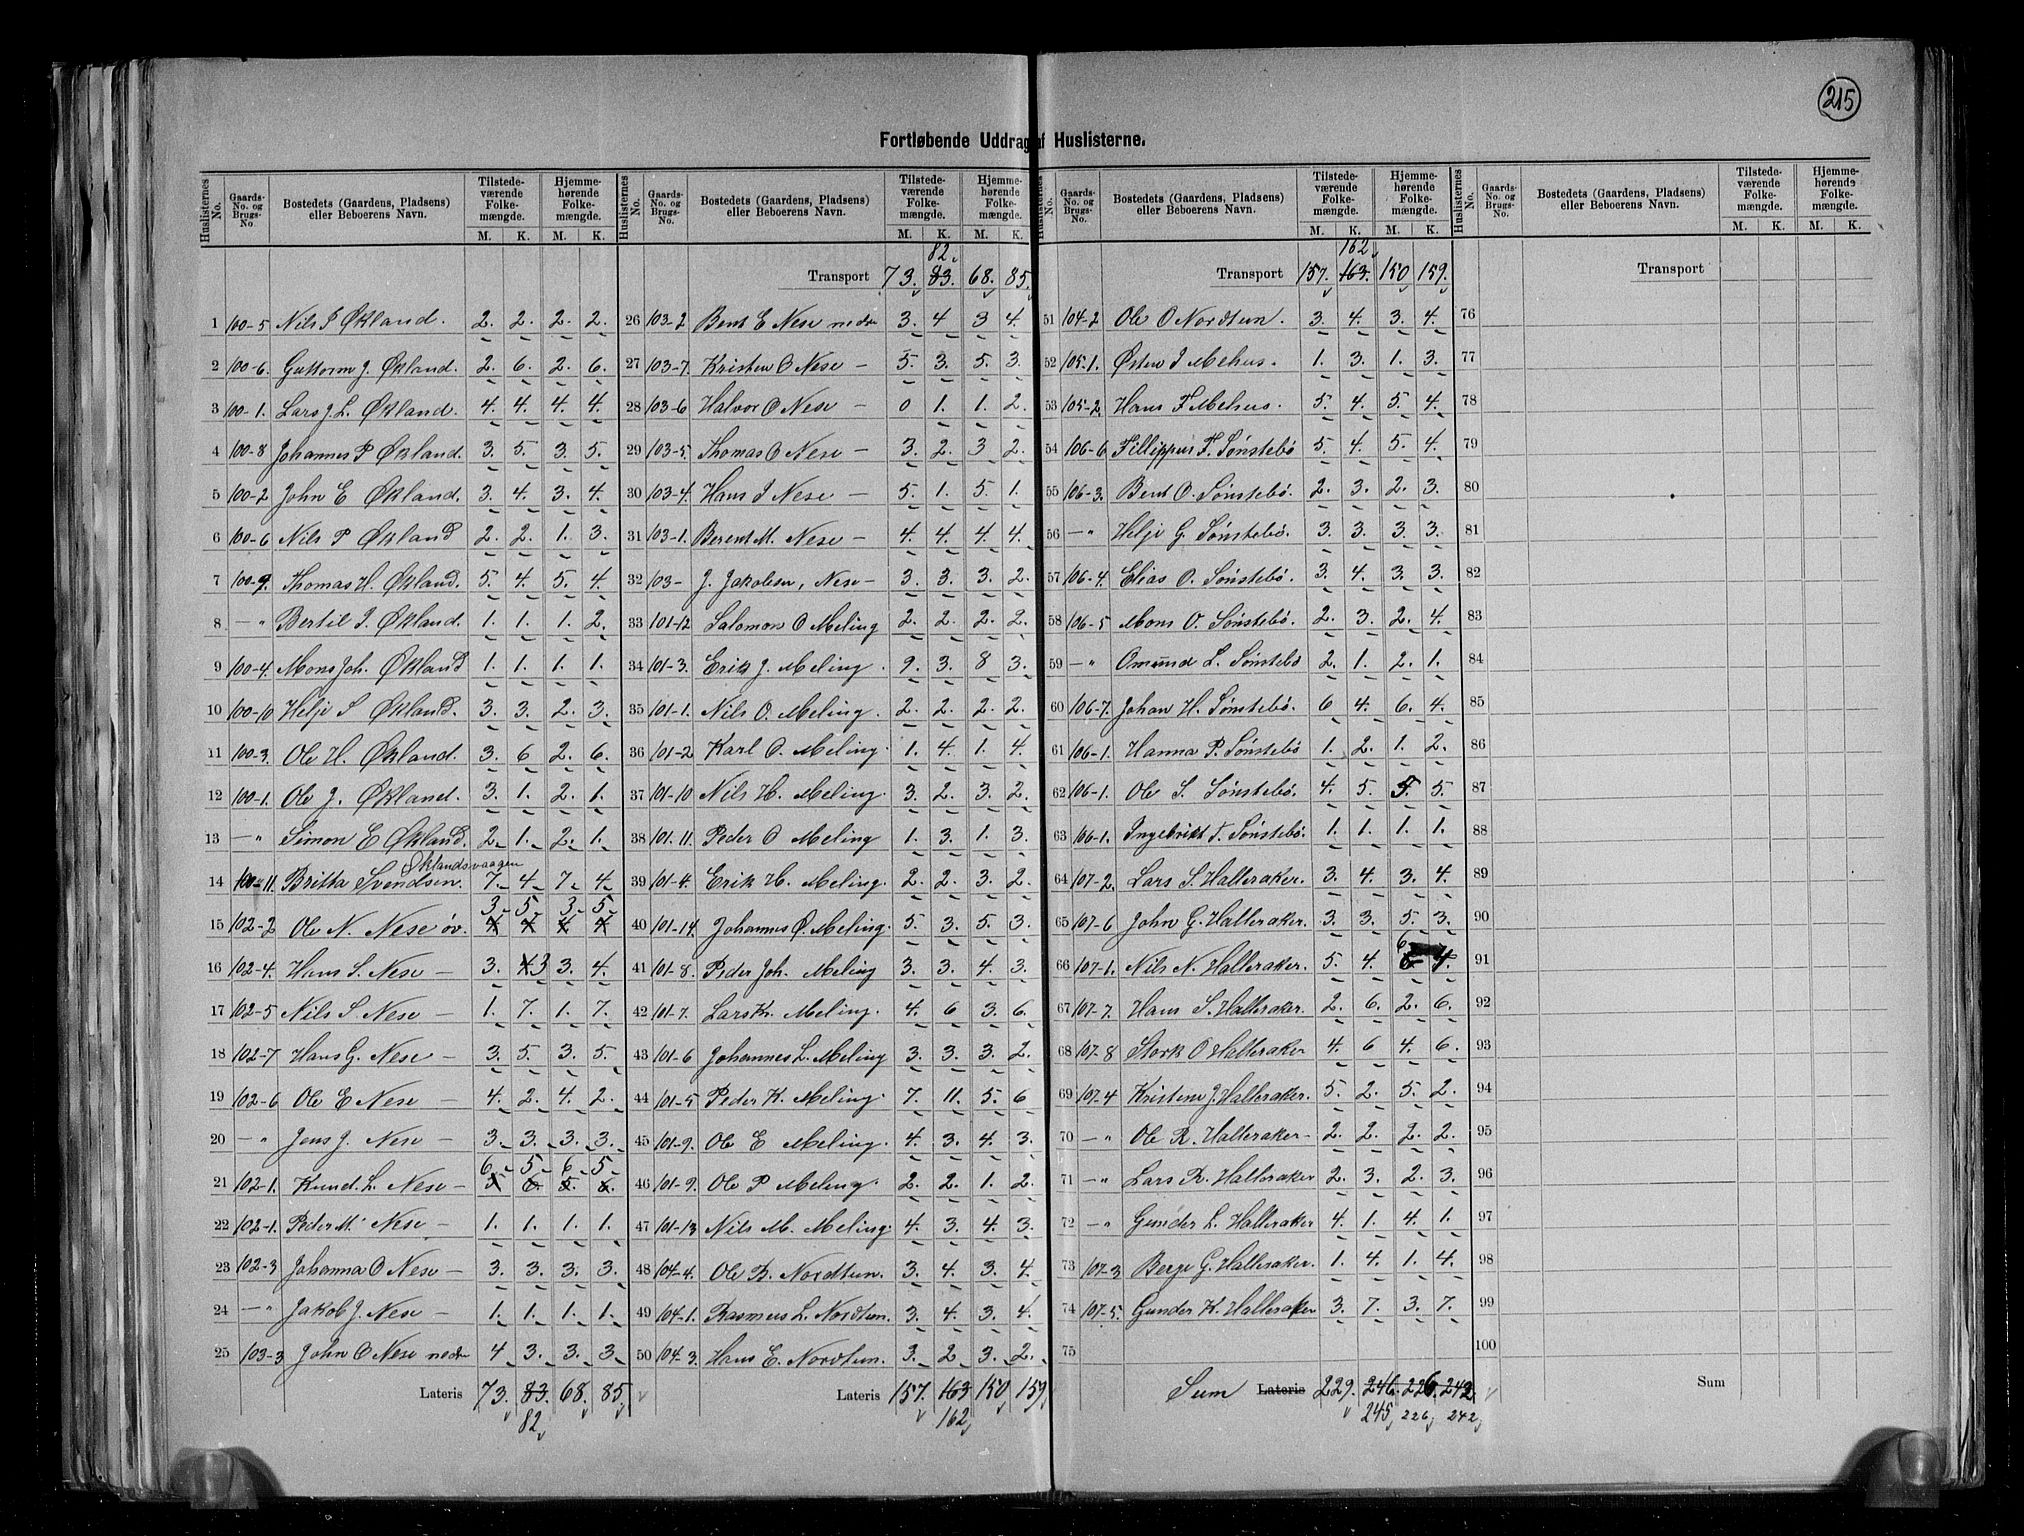 215
Fortløbende Uddrag af Huslisterne.
Huslisternes No. Gaards-No. og Brugs-No. Bostedets (Gaardens, Pladsens) eller Beboerens Navn. Tilstedeværende Folkemængde. Hjemmehørende Folkemængde.
M. K. M. K.
1 100-5 Nils P Økland. 2. 2. 2. 2.
2 100-6. Guttorm J. Økland. 2. 6. 2. 6.
3 100-1. Lars J. L. Økland. 4. 4. 4. 4.
4 100-8 Johannes P Økland. 3. 5. 3. 5.
5 100-2 John E Økland. 3. 4. 3. 4.
6 100-6 Nils P Økland 2. 2. 1. 3.
7 100-9. Thomas H. Økland. 5. 4. 5. 4.
8 —„ Bertil I. Økland. 1. 1. 1. 2.
9 100-4. Mons Joh. Økland 1. 1. 1. 1.
10 100-10 Helje S Økland. 3. 3. 2. 3.
11 100-3. Ole H. Økland. 3. 6 2. 6.
12 100-1. Ole J. Økland. 3. 1. 2. 1.
13 —„ Simon E Økland. 2. 1. 2. 1.
Øklandsvaagen
14 100-11. Britta Svendsen. 7. 4. 7. 4.
3. 5. 3. 5.
15 102-2 Ole N. Nese öv. 4 4 4 4
16 102-4. Hans S. Nese — 3. 4 3 3. 4.
17 102-5 Nils S. Nese — 1. 7. 1. 7.
18 102-7 Hans G. Nese — 3. 5. 3. 5.
19 102-6 Ole E Nese — 4. 2. 4. 2.
20 —„ Jens J. Nese — 3. 3. 3. 3.
6. 5. 6. 5.
21 102-1. Knud L. Nese — 5 6. 5. 6.
22 102-1. Peder M. Nese — 1. 1. 1. 1.
23 102-3 Johanna O Nese — 3. 3. 3. 3.
24 —„ Jakob J. Nese — 1. 1. 1. 1.
25 103-3 John O Nese nedre 4 3. 3. 3.
Lateris 73. 83. 68. 85.
82
Huslisternes No. Gaards-No. og Brugs-No. Bostedets (Gaardens, Pladsens) eller Beboerens Navn. Tilstedeværende Folkemængde. Hjemmehørende Folkemængde.
M. K. M. K.
82.
Transport 73. 83. 68. 85.
26 103-2 Bent E Nese nedre 3. 4 3 4.
27 103-7. Kristen O Nese — 5. 3. 5. 3.
28 103-6 Halvor O Nese — 0 1. 1. 2.
29 103-5. Thomas O Nese — 3. 2. 3 2.
30 103-4. Hans I Nese — 5. 1. 5. 1.
31 103-1. Berent M. Nese — 4. 4. 4. 4.
32 103- J. Jakobsen, Nese — 3. 3. 3. 2.
33 101-12 Salomon O Meling 2. 2. 2. 2.
34 101-3. Erik J. Meling. 9. 3. 8 3.
35 101-1. Nils O. Meling. 2. 2. 2. 2.
36 101-2 Karl O. Meling. 1. 4. 1. 4.
37 101-10 Nils H. Meling. 3. 2. 3. 2.
38 101-11. Peder O Meling 1. 3. 1. 3.
39 101-4. Erik H. Meling. 2. 2. 3. 2.
40 101-14. Johannes O. Meling. 5. 3. 5. 3.
41 101-8. Peder Joh. Meling 3. 3. 4. 3.
42 101-7. Lars K. Meling. 4. 6 3. 6.
43 101-6 Johannes L. Meling 3. 3. 3. 2.
44 101-5 Peder K. Meling. 7. 11. 5. 6
45 101-9. Ole E Meling. 4. 3. 4. 3.
46 101-9. Ole P Meling. 2. 2. 1. 2.
47 101-13 Nils M. Meling. 4. 3. 4. 3.
48 104-4. Ole B. Nordtun. 3. 4. 3. 4.
49 104-1. Rasmus L. Nordtun. 3. 4. 3. 4.
50 104-3. Hans E. Nordtun. 3. 2. 3. 2.
Lateris 157. 163 150. 159
162
Huslisternes No. Gaards-No. og Brugs-No. Bostedets (Gaardens, Pladsens) eller Beboerens Navn. Tilstedeværende Folkemængde. Hjemmehørende Folkemængde.
M. K. M. K.
162
Transport 157. 163. 150 159.
51 104-2 Ole O Nordtun. 3. 4. 3. 4.
52 105-1. Østen I Mehus. 1. 3. 1. 3.
53 105-2. Hans F Mehus. 5. 4. 5. 4.
54 106-6 Fillippus F. Sønstebö 5. 4. 5. 4.
55 106-3. Bent O. Sønstebö. 2. 3. 2. 3.
56 —„ Helje G. Sønstebö. 3. 3. 3. 3.
57 106-4. Elias O. Sønstebö. 3. 4. 3. 3.
58 106-5 Mons O. Sønstebö. 2. 3. 2. 4.
59 —„ Omund L. Sønstebö 2. 1. 2. 1.
60 106-7. Johan H. Sønstebö. 6 4. 6. 4.
61 106-1. Hanna P. Sønstebö 1. 2. 1. 2.
62 106-1. Ole S. Sønstebö. 4. 5. 5. 5.
63 106-1. Ingebrikt T. Sønstebö. 1. 1. 1. 1.
64 107-2. Lars S. Halleraker. 3. 4. 3. 4.
65 107-6 John G. Halleraker. 3. 3. 5. 3.
66 107-1. Nils N. Halleraker. 5. 4. 6 4.
67 107-7. Hans S. Halleraker. 2. 6. 2. 6.
68 107-8 Stork O Halleraker 4. 6 4. 6.
69 107-4 Kristense J. Halleraker. 5. 2. 5. 2.
70 —„ Ole R. Halleraker. 2. 2. 2. 2.
71 —„ Lars R. Halleraker 2. 3. 2. 3.
72 —„ Gunder L. Halleraker 4. 1. 4. 1.
73 107-3 Berje G. Halleraker. 1. 4. 1. 4.
74 107-5. Gunder K. Halleraker 3. 7. 3. 7.
75
Sum Lateris 229. 246. 226. 242.
245 226. 242.
Huslisternes No. Gaards-No. og Brugs-No. Bostedets (Gaardens, Pladsens) eller Beboerens Navn. Tilstedeværende Folkemængde. Hjemmehørende Folkemængde.
M. K. M. K.
Transport
76
77
78
79
80
81
82
83
84
85
86
87
88
89
90
91
92
93
94
95
96
97
98
99
100
Sum